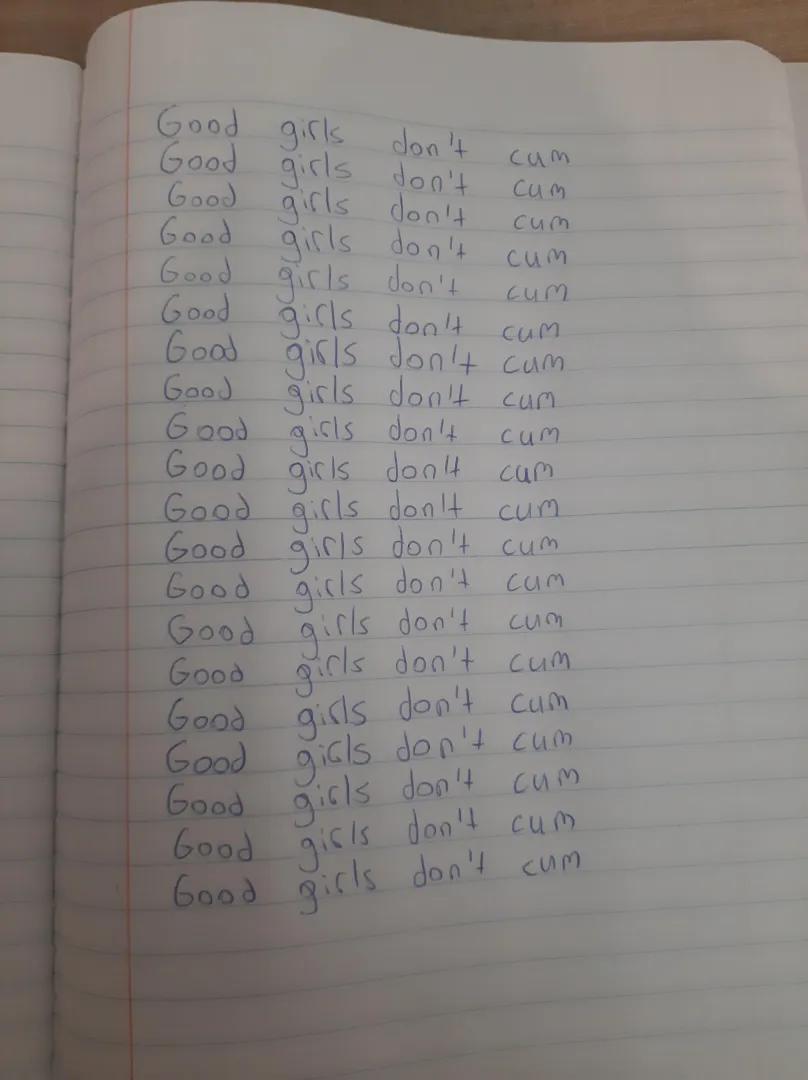 Good girls don't cum
Good girls don't cum
Good girls don't cum
Good girls don't cum
Good girls don't cum
Good girls don't cum
Good girls don't cum
Good girls don't cum
Good girls don't cum
Good girls don't cum
Good girls don't cum
Good girls don't cum
Good girls don't cum
Good girls don't cum
Good girls don't cum
Good girls don't cum
Good girls don't cum
Good girls don't cum
Good girls don't cum
Good girls don't cum